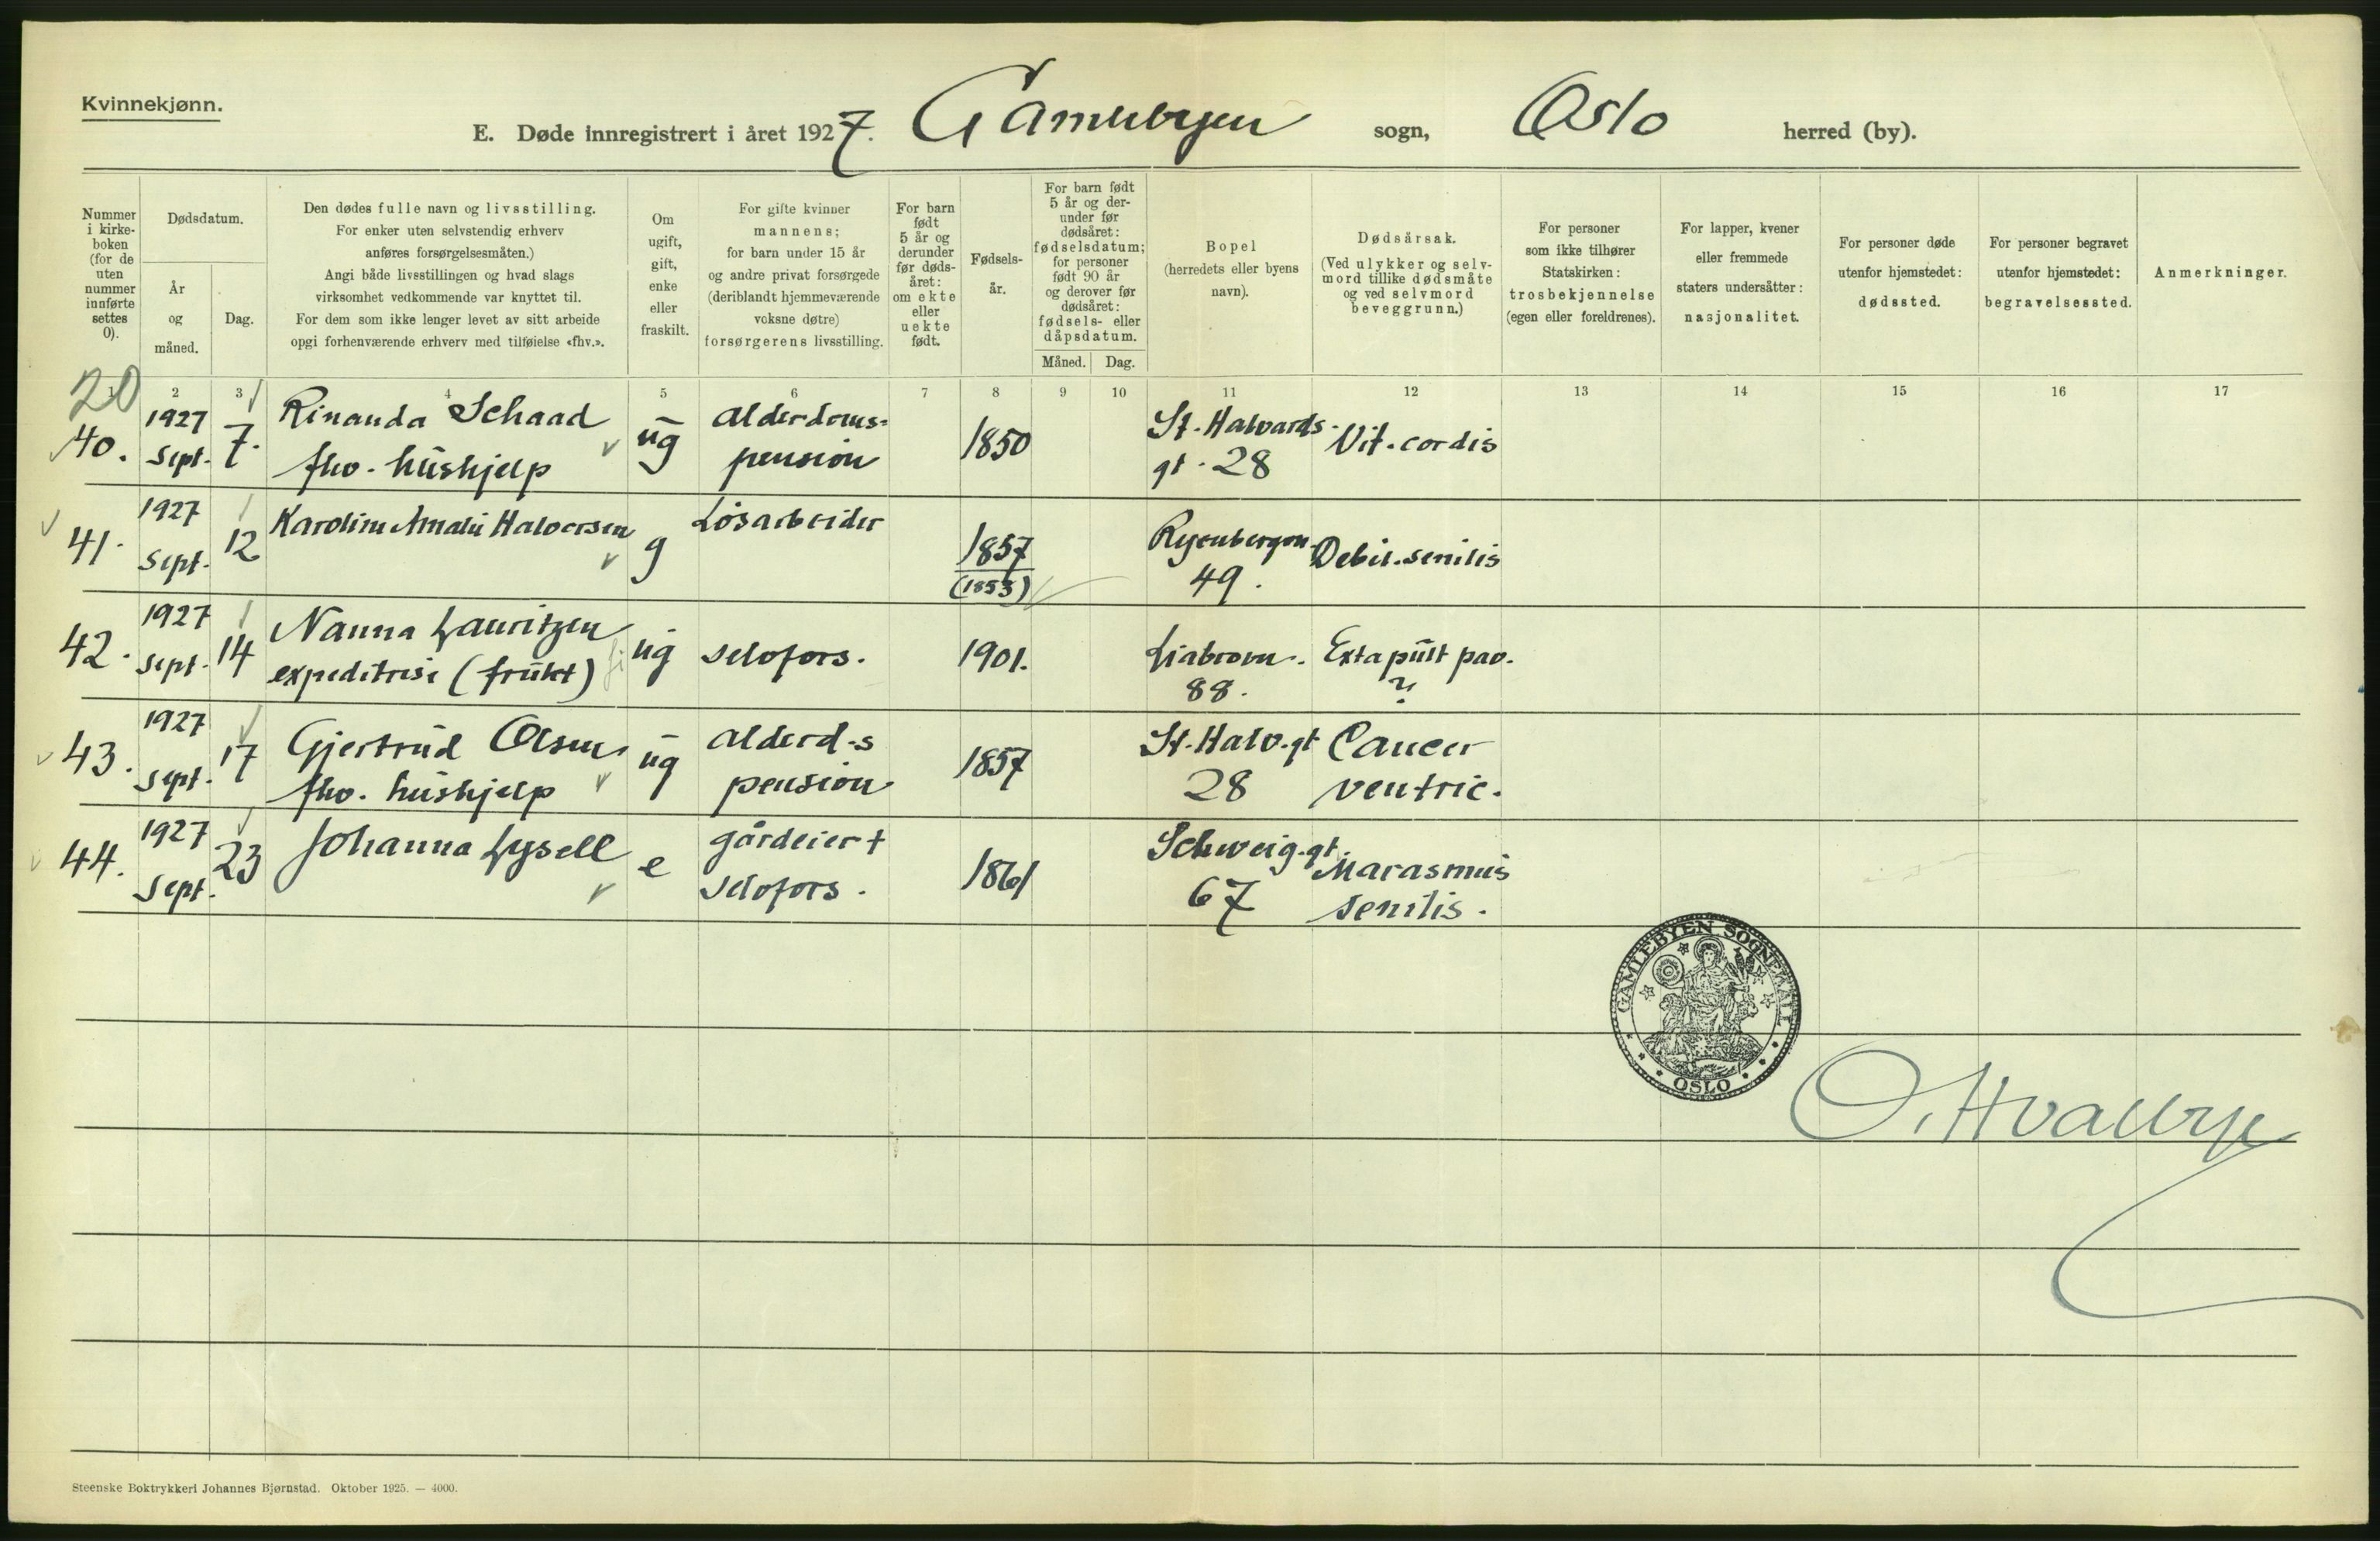 Kvinnekjønn.
E. Døde innregistrert i året 1927. Gamlebyen sogn, Oslo herred (by).
Nummer i kirke-boken (for de uten nummer innførte settes 0).
Dødsdatum.
År og måned.
Dag.
Den dødes fulle navn og livsstilling.
For enker uten selvstendig erhverv
anføres forsørgelsesmåten.)
Angi både livsstillingen og hvad slags
virksomhet vedkommende var knyttet til.
For dem som ikke lenger levet av sitt arbeide
opgi forhenværende erhverv med tilføielse «fhv.».
Om ugift, gift, enke eller fraskilt.
For gifte kvinner
mannens;
for barn under 15 år
og andre privat forsørgede
(deriblandt hjemmeværende
voksne døtre)
forsørgerens livsstilling.
For barn født 5 år og derunder før døds-året: om ekte eller uekte født.
Fødsels-år.
For barn født
5 år og der-
under før
dødsåret:
fødselsdatum;
for personer
født 90 år
og derover før
dødsåret:
fødsels- eller
dåpsdatum.
Måned. Dag.
Bopel
(herredets eller byens
navn).
Dødsårsak.
(Ved ulykker og selv-
mord tillike dødsmåte
og ved selvmord
beveggrunn.)
For personer
som ikke tilhører
Statskirken:
trosbekjennelse
(egen eller foreldrenes).
For lapper, kvener
eller fremmede
staters undersåtter:
nasjonalitet.
For personer døde
utenfor hjemstedet:
dødssted.
For personer begravet
utenfor hjemstedet:
begravelsessted.
Anmerkninger.
20
2 3 4 5 6 7 8 9 10 11 12 13 14 15 16 17
40. 1927 Sept. 7. Rinanda Schaad fhv. hushjelp ug alderdoms-pension 1850 St. Halvards-gt. 28 Vit. cordis
41. 1927 Sept. 12 Karoline Amalie Halvorsen g Løsarbeider 1857 (1853) Ryenbergvn. 49. Debil. senilis
42. 1927 Sept. 14 Nanna Lauritzen expeditrise (frukt) ug selvfors. 1901. Liabrovn. 88. Exta puilt pav. ?
43. 1927 Sept. 17 Gjertrud Olsen fhv. hushjelp ug alderd-s pension 1857 St. Halv. gt 28 Cancer ventric.
44. 1927 Sept. 23 Johanna Lysell e gårdeier + selvfors. 1861 Schweig. gt. 67 Marasmus senilis.
GAMLEBYEN SOGNEKALL
OSLO
O. Hvalbye
Steenske Boktrykkeri Johannes Bjørnstad. Oktober 1925. — 4000.